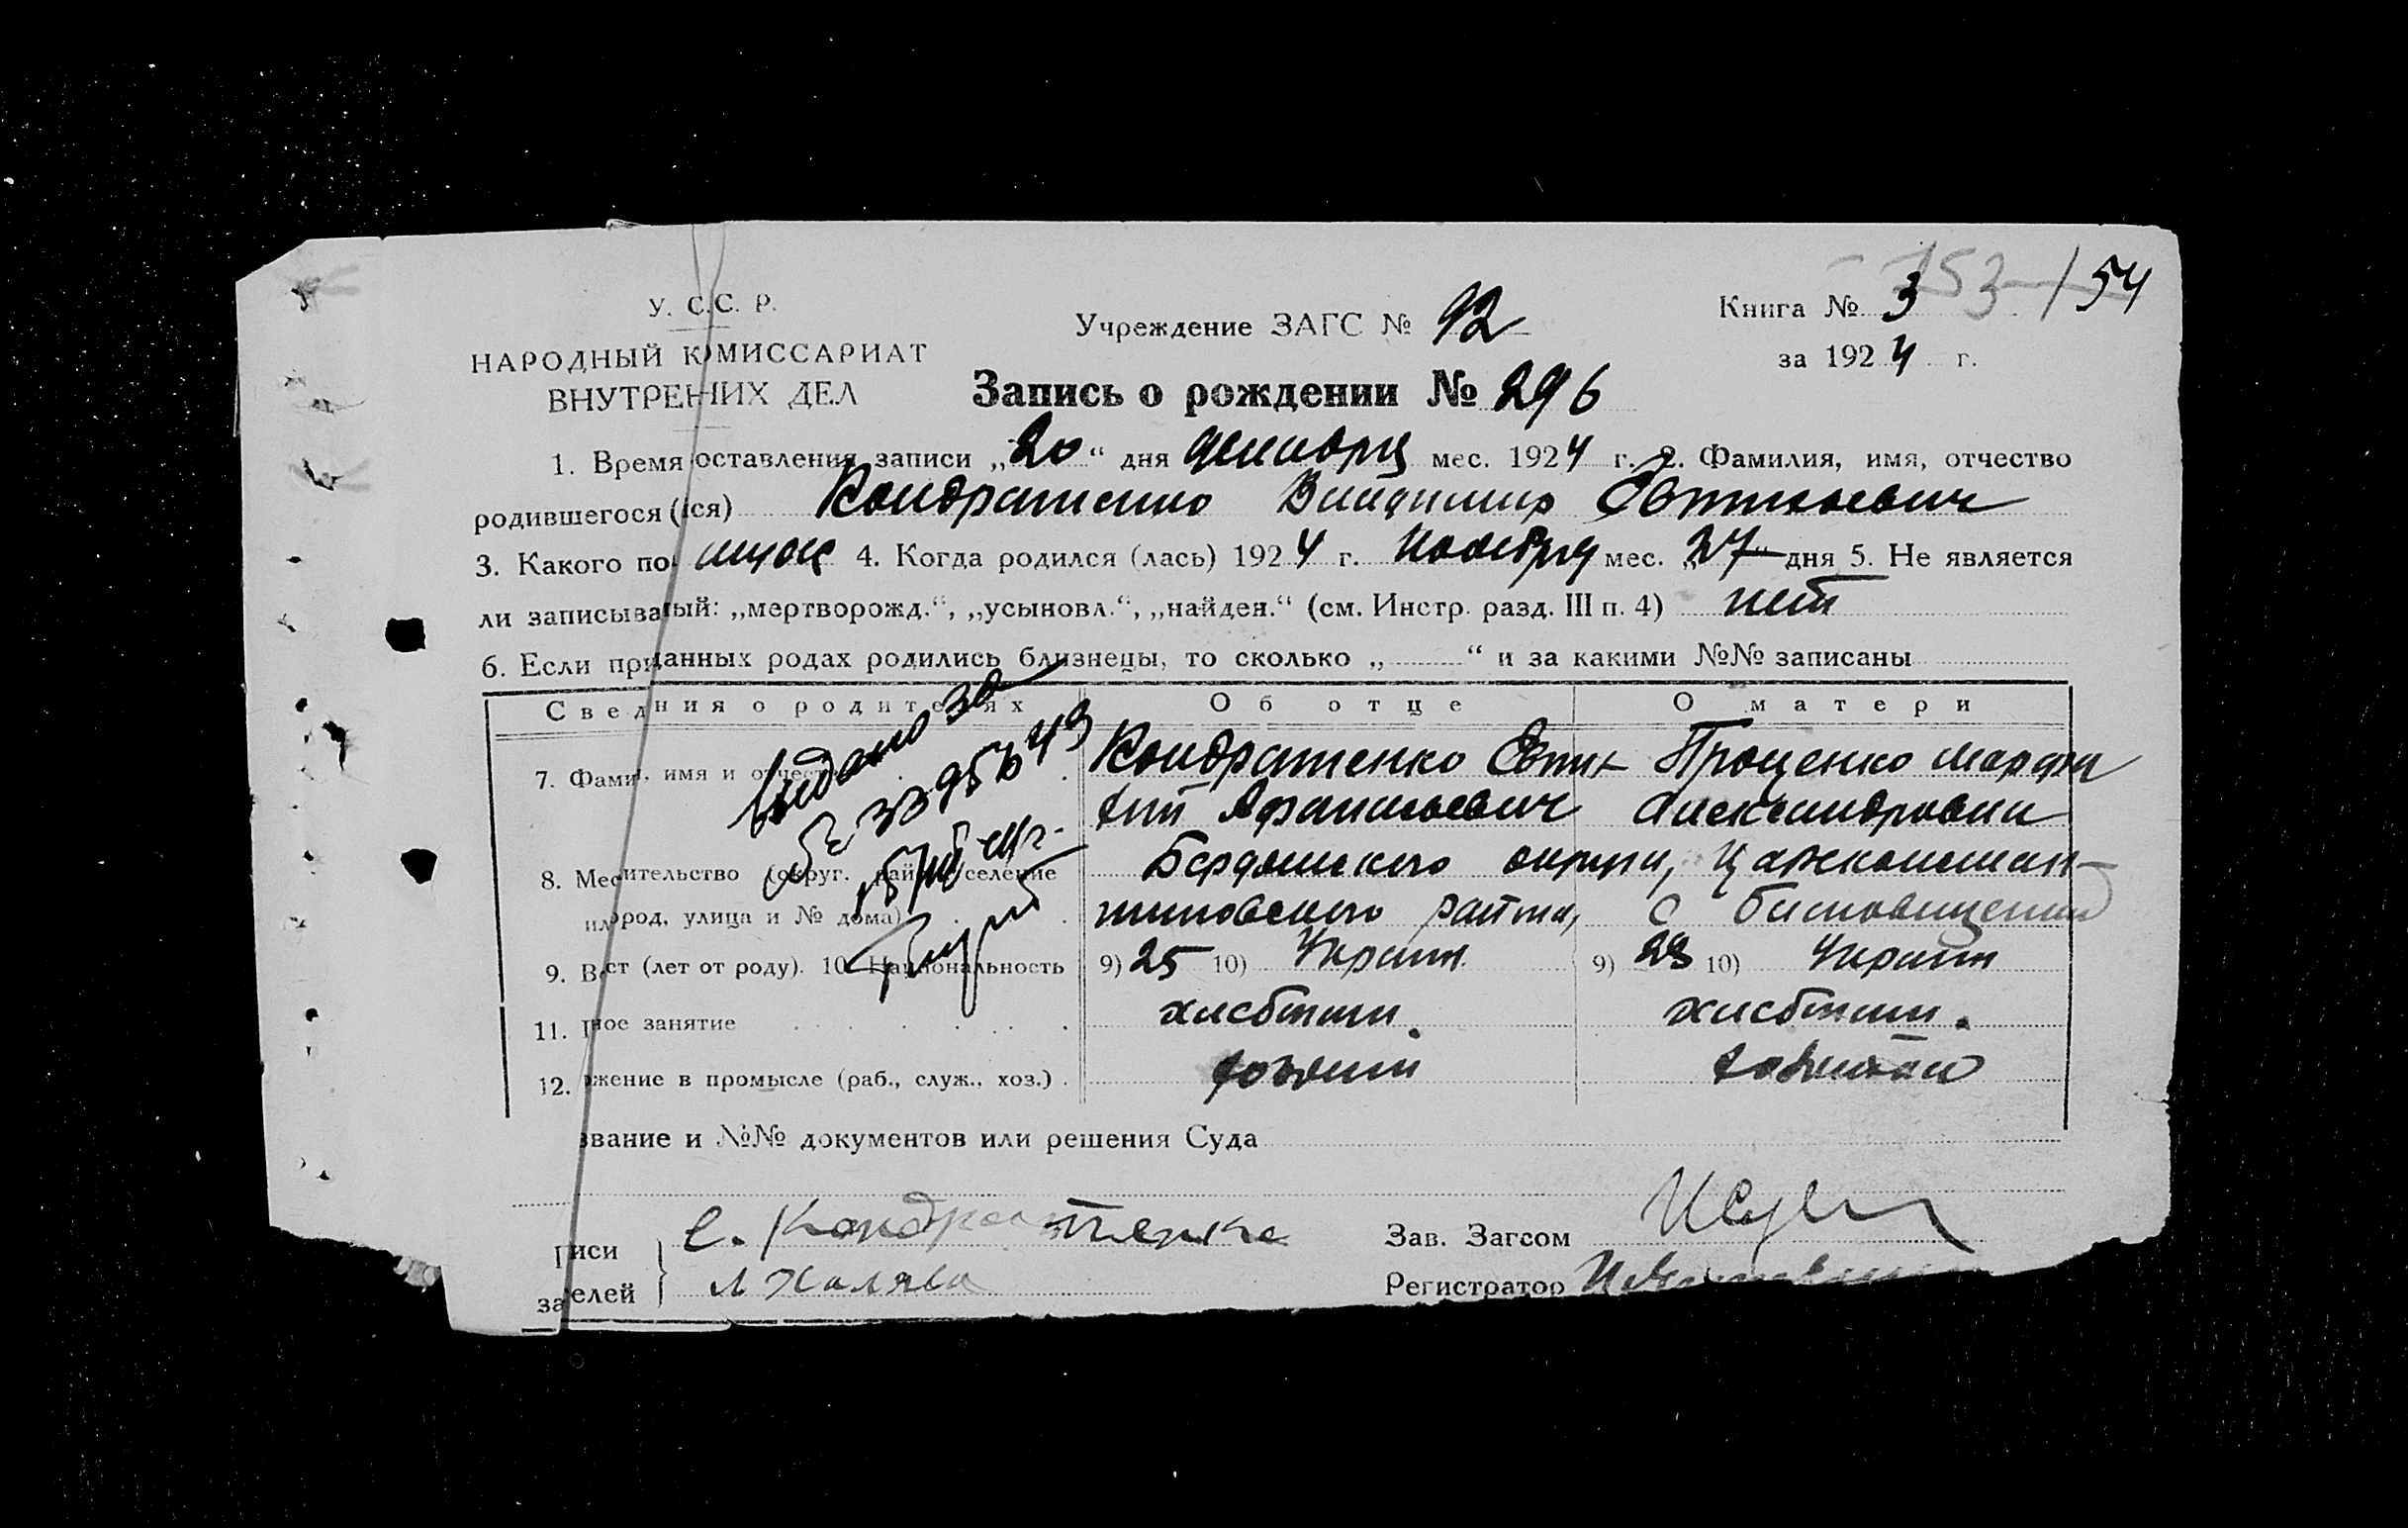 153 154
У. С.С. Р.
НАРОДНЫЙ КОМИССАРИАТ
ВНУТРЕННИХ ДЕЛ
Учреждение ЗАГС № 92
Книга № 3
за 1924 г.
Запись о рождении № 296
1. Время оставления записи „20“ дня декабря мес. 1924 г. 2. Фамилия, имя, отчество
родившегося (ся) Кондратенко Владимир Евтихиевич
3. Какого по муж 4. Когда родился (лась) 1924 г. ноября мес. „27“ дня 5. Не является
ли записыва ый: „мертворожд.“, „усыновл.“, „найден.“ (см. Инстр. разд. III п. 4) нет
6. Если при данных родах родились близнецы, то сколько „ “ и за какими №№ записаны
Сведения о родителях Об отце О матери
7. Фами имя и отчество Кондратенко Евти- Проценко Марфа
хий Афанасьевич Александровна
8. Мес ительство (округ. район селение Бердянского округа, Цареконстан-
ил ород, улица и № дома) тиновского района, с
9. В ст (лет от роду). 10. Национальность 9) 25 10) Украин 9) 23 10) Украин
11. ное занятие хлебопаш. хлебопаш.
12. жение в промысле (раб., служ., хоз.)
Выдано за
33 95643
звание и №№ документов или решения Суда
писи Е. Кондратенко
Зав. Загсом
за елей Л Халява
Регистратор